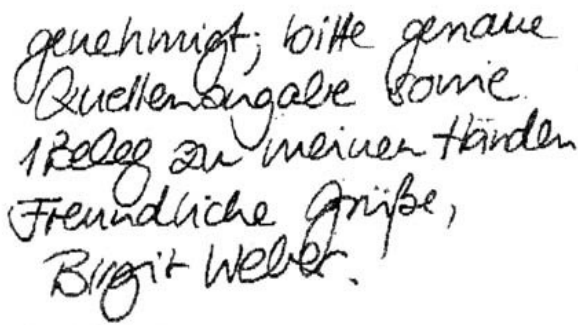 genehmigt; bitte genaue
Quellenangabe sowie
1 Beleg zu meinen Händen
Freundliche Grüße,
Birgit Weber.